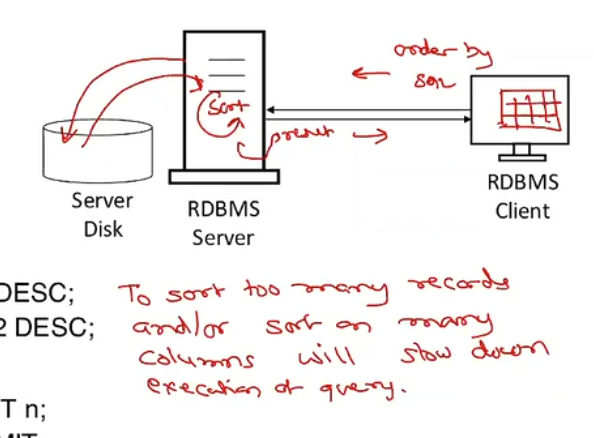 order by
sql
Sort
result
Server
Disk
RDBMS
Server
RDBMS
Client
DESC;
2 DESC;
To sort too many records
and/or sort on many
columns will slow down
execution of query.
T n;